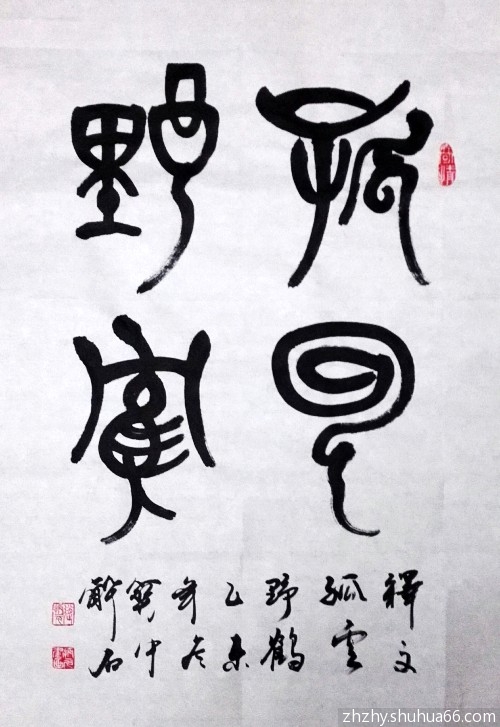 孤雲
野鶴
釋文
孤雲
野鶴
乙未
年冬
醉石
zhzhy.shuhua66.com